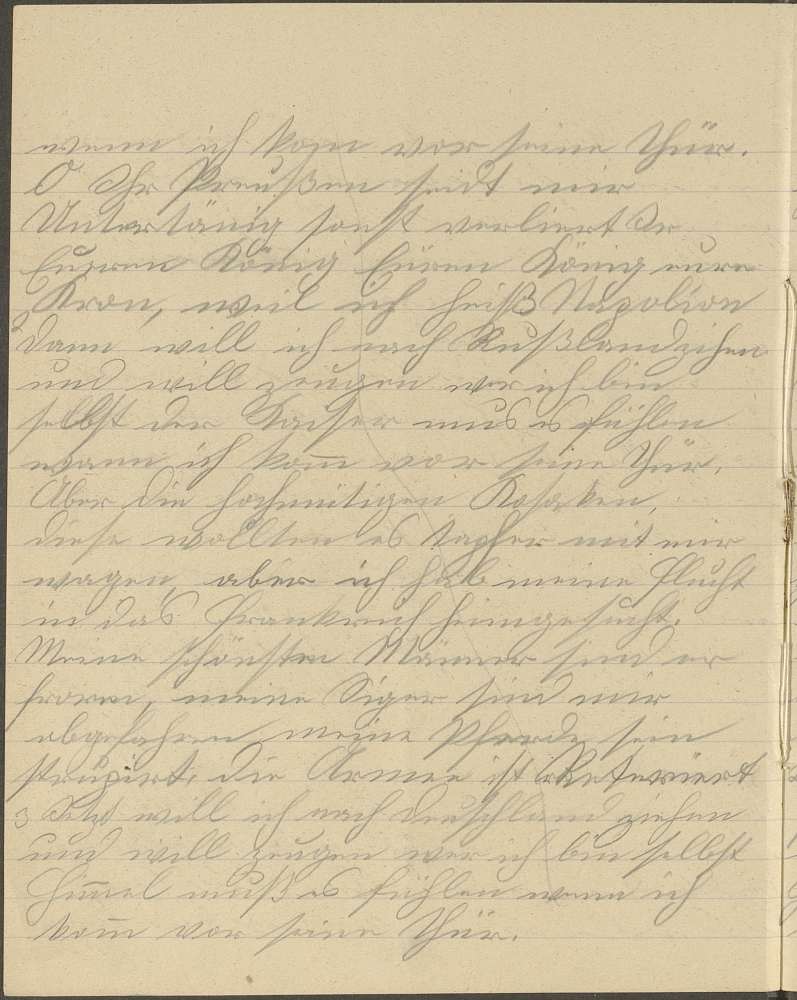 wenn ich kom vor seine Thür.
O Ihr Preußen seidt mir
Untertänig sonst verliert Ir
Euren König Euren König eure
Kron, weil ich heiß Napolion
Dann will ich nach Rußland zihen
und will zeugen wer ich bin
selbst der Kaiser mus es fühlen
wann ich kom̄ vor seine Thür.
Aber die hochmütigen Kosaken,
diese wollten es tapfer mit mir
wagen, aber ich hab meine Flucht
in das Frankreich heimgesucht.
Meine schönsten Männer sind er
froren, meine Siger sind mir
abgefahren meine Pferde sein
die Armee ist Retteriert
3 Jetzt will ich nach Deuschland ziehen
und will zeugen wer ich bin selbst
Him̄el muß es fühlen wenn ich
kom̄ vor seine Thür.